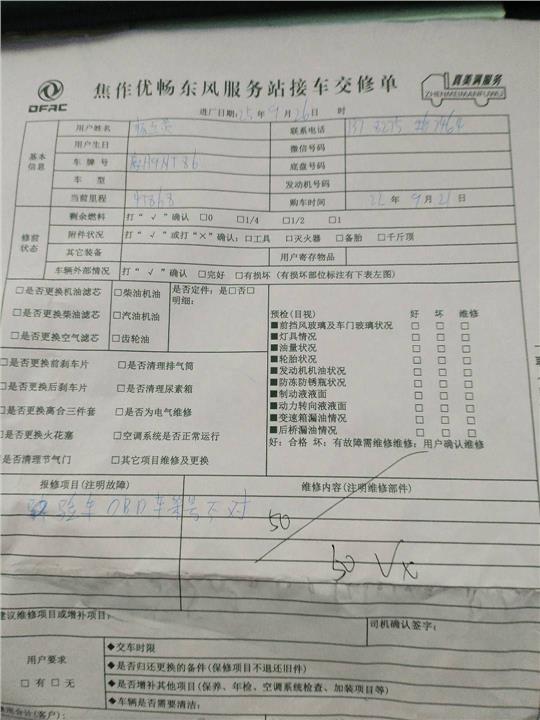 DFAC
焦作优畅东风服务站接车交修单
真美满服务
ZHENMEIMANFUWU
进厂日期:25年9月26日 时
基本信息
用户姓名
联系电话
用户生日
微信号码
车牌号
底盘号码
车型
发动机号码
当前里程
购车时间 22年9月21日
修前状态
剩余燃料 打“√”确认 □0 □1/4 □1/2 □1
附件状况 打“√”或打“×”确认:□工具 □灭火器 □备胎 □千斤顶
其它装备 用户寄存物品
车辆外部情况 打“√”确认 □完好 □有损坏(有损坏部位标注有下表左图)
□是否更换机油滤芯 □柴油机油 是否定件:是□否□
明细:
□是否更换柴油滤芯 □汽油机油
□是否更换空气滤芯 □齿轮油
□是否更换前刹车片 □是否清理排气筒
□是否更换后刹车片 □是否清理尿素箱
□是否更换离合三件套 □是否为电气维修
□是否更换火花塞 □空调系统是否正常运行
□是否清理节气门 □其它项目维修及更换
预检(目视) 好 坏 维修
■前挡风玻璃及车门玻璃状况 □ □ □
■灯具情况 □ □ □
■油量状况 □ □ □
■轮胎状况 □ □ □
■发动机机油状况 □ □ □
■防冻防锈瓶状况 □ □ □
■制动液液面 □ □ □
■动力转向液液面 □ □ □
■变速箱漏油情况 □ □ □
■后桥漏油情况 □ □ □
好:合格 坏:有故障需维修维修:用户确认维修
报修项目(注明故障) 维修内容(注明维修部件)
验车OBD车架号不对
50
50 √x
建议维修项目或增补项目:
司机确认签字:
用户要求
□有□无
◆交车时限
◆是否归还更换的备件(保修项目不退还旧件)
◆是否增补其他项目(保养、年检、空调系统检查、加装项目等)
◆车辆是否需要清洁:
(客户):